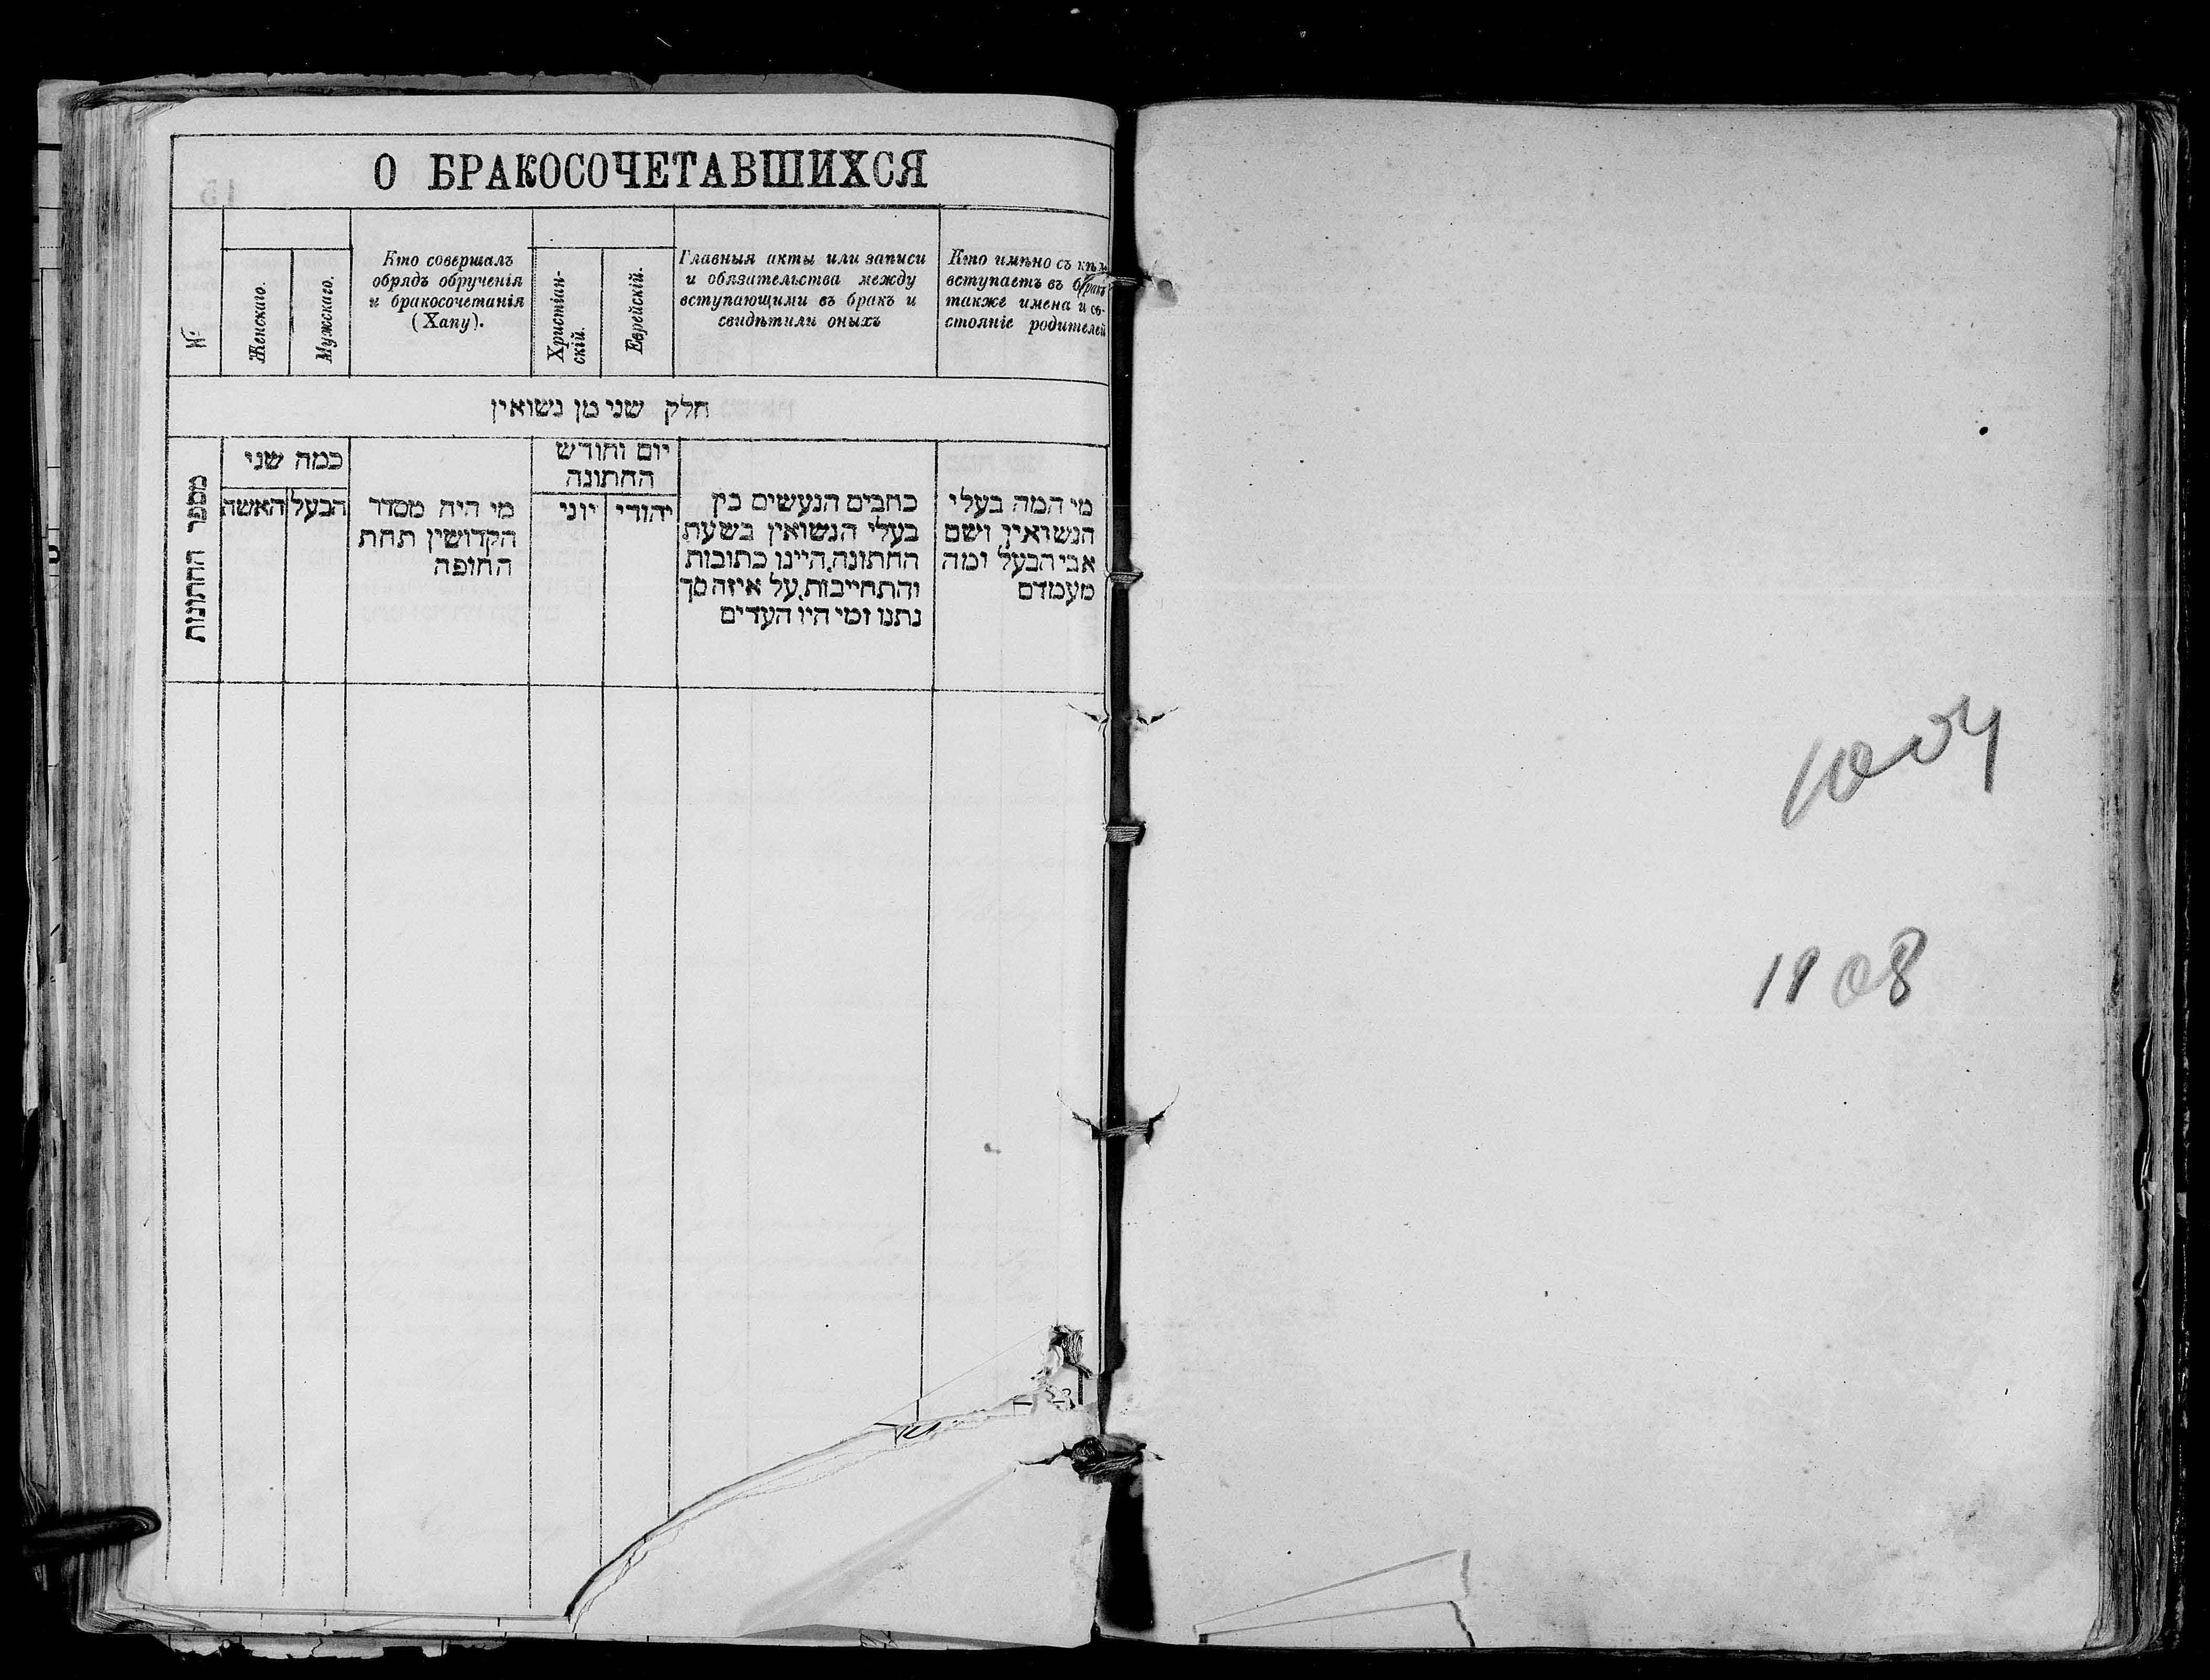 О БРАКОСОЧЕТАВШИХСЯ
№
Женскаго.
Мужскаго.
Кто совершалъ
обрядъ обрученія
и бракосочетанія
(Хапу).
Христіан-
скій.
Еврейскій.
Главныя акты или записи
и обязательства между
вступающими въ бракъ и
свидѣтили оныхъ
Кто имѣно съ кѣмъ
вступаетъ въ бракъ
также имена и со-
стояніе родителей
חלק שני מן נשואין
מספר החתונות
כמה שני
האשה
הבעל
מי היה מסדר
הקדושין תחת
החופה
יום וחודש
החתונה
יוני
יהודי
כתבים הנעשים בין
בעלי הנשואין בשעת
החתונה, היינו כתובות
והתחייבות, על איזה סך
נתנו ומי היו העדים
מי המה בעלי
הנשואין ושם
אבי הבעל ומה
מעמדם
1908